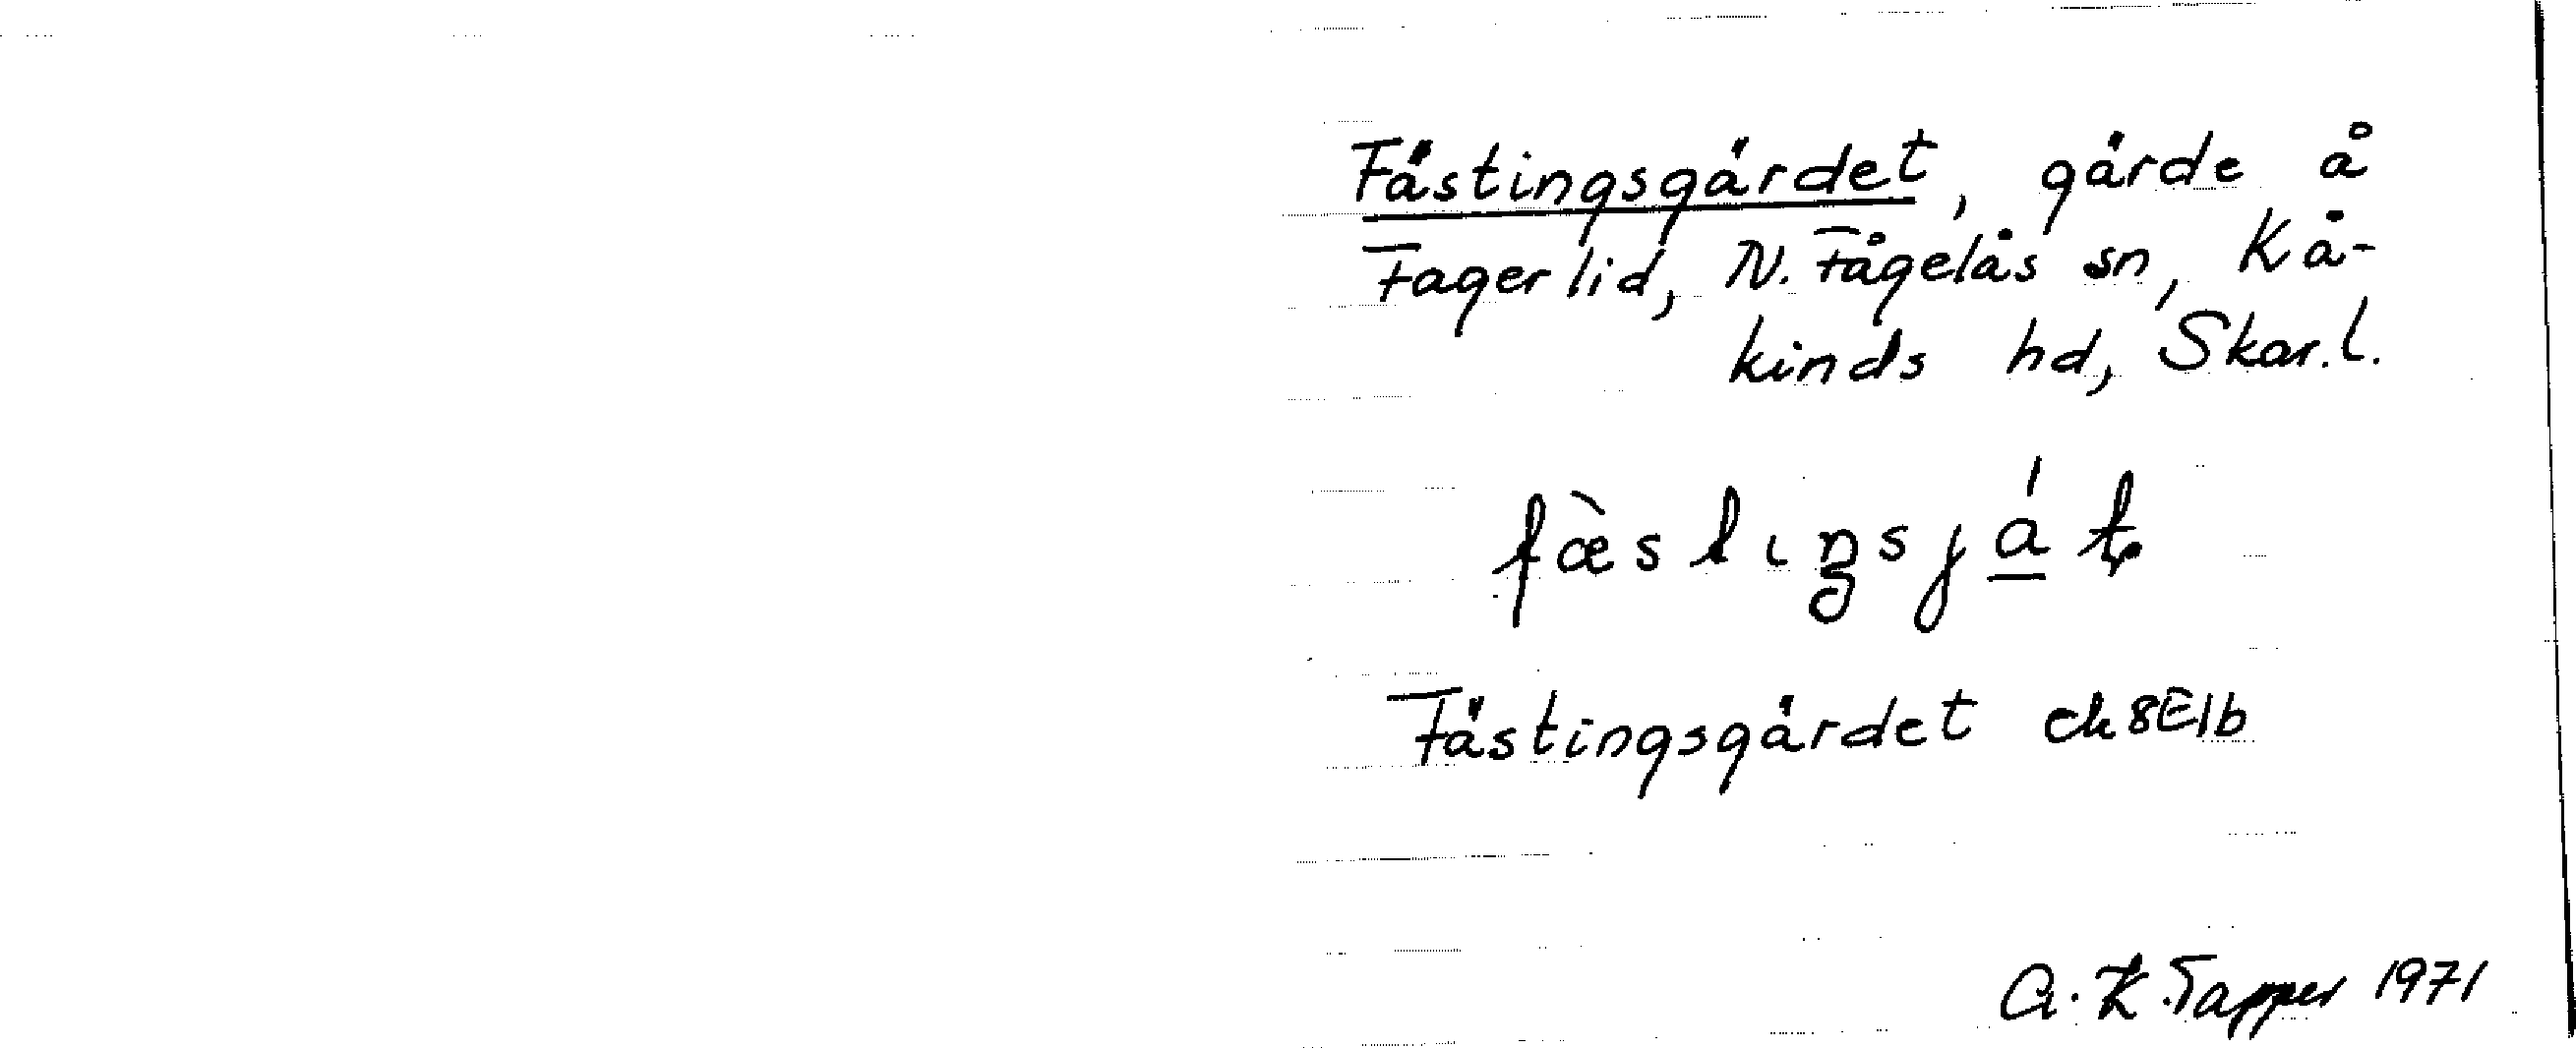 Fästingsgärdet, gärde å
Fagerlid, N. Fågelås sn, Kå-
kinds hd, Skar.l.
Fästingsgärdet ek 8E1b
A. K. Tapper 1971